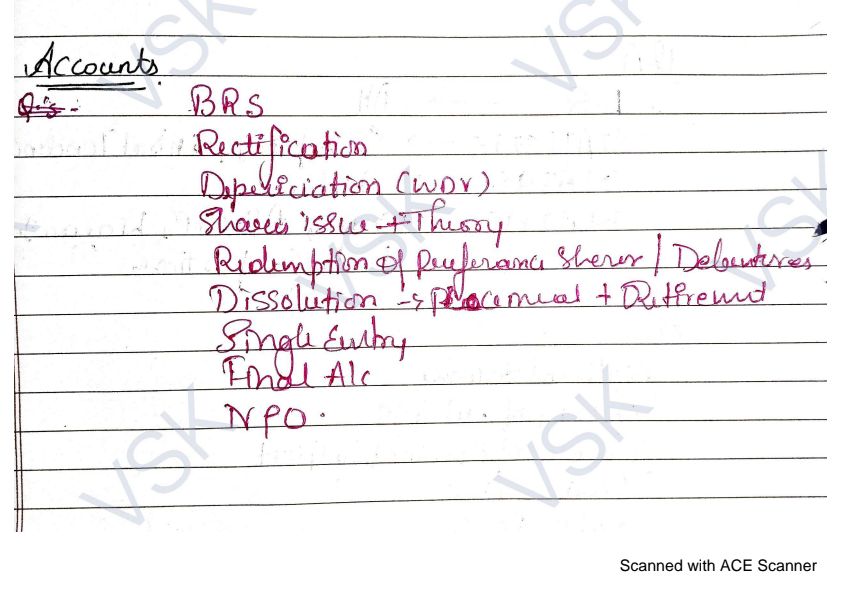 VSK VSK
Accounts
Q.'s - BRS
Rectification
Depericiation (WDV)
Shares issue + Theory
Redemption of preferance Sherer / Debentures
Dissolution → + Retirement
Single Entry
Final A/c
NPO.
VSK VSK VSK
VSK VSK
Scanned with ACE Scanner